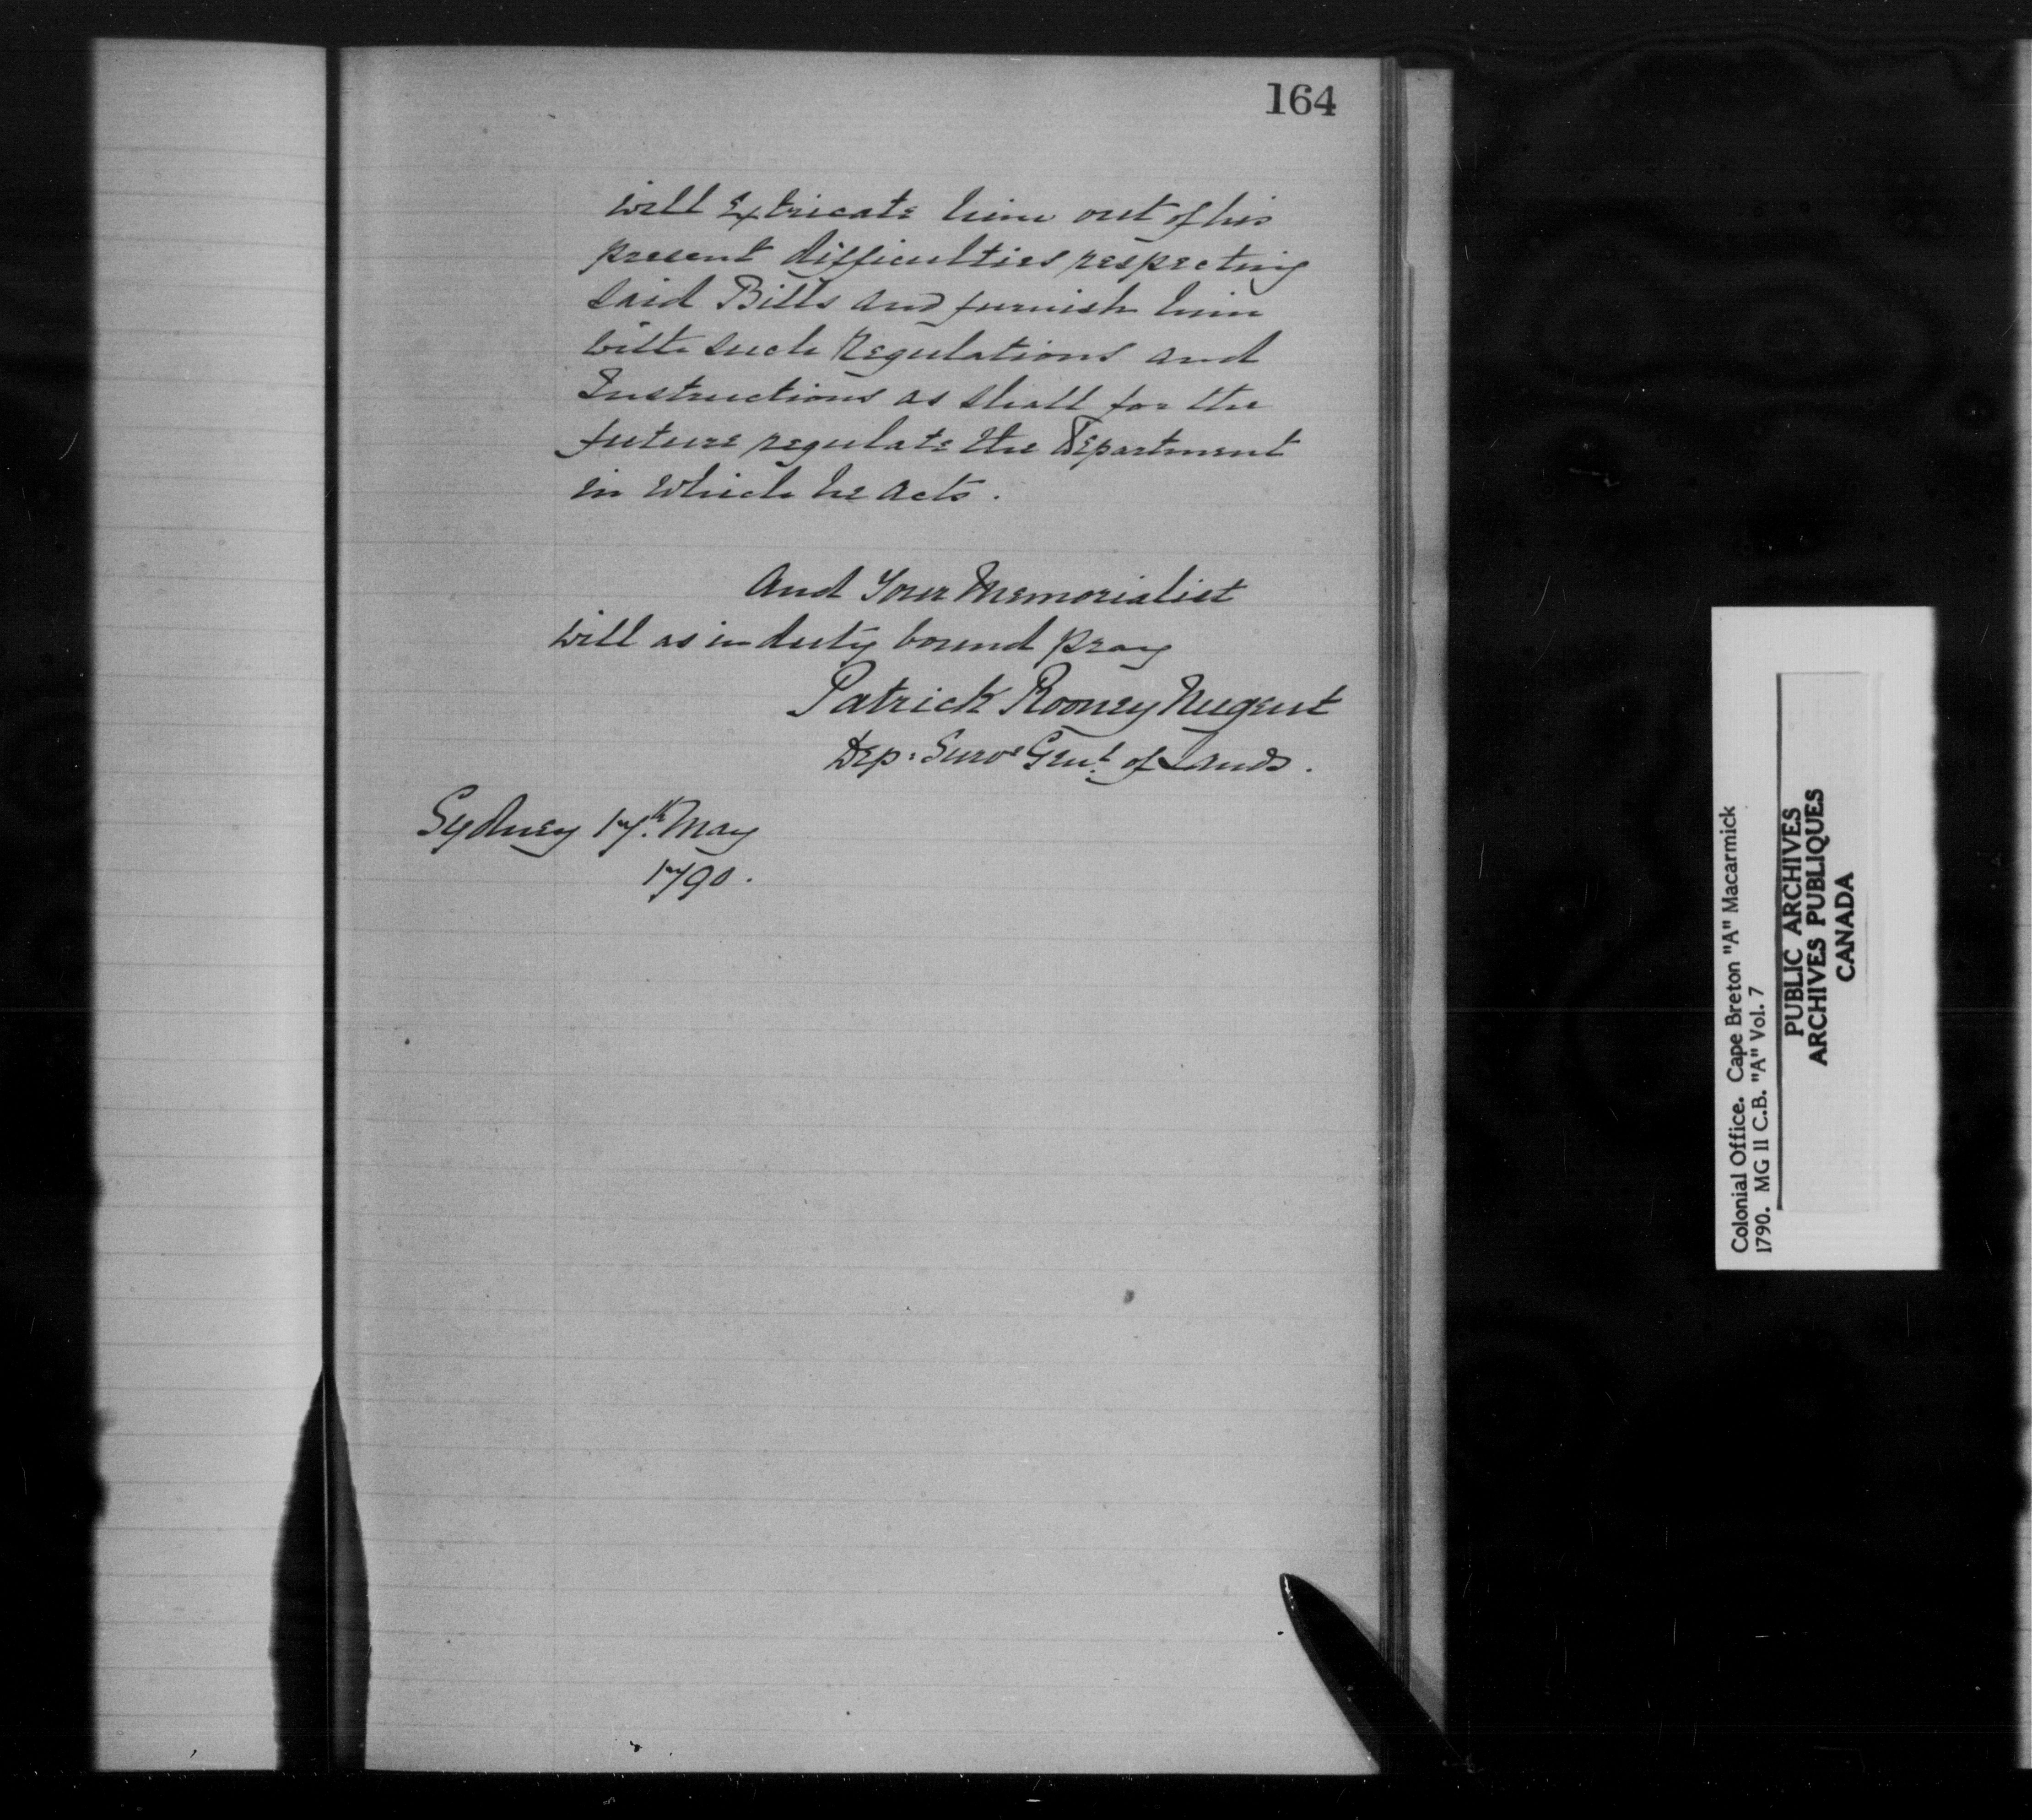 164
will Extricate him out of his
present difficulties respecting
said Bills and furnish him
with such Regulations and
Instructions as shall for the
future regulate the Department
in which he acts.
And Your Memorialist
will as in duty bound pray
Patrick Rooney Nugent
Dep: Survr Genl. of Lands.
Sydney 17th. May
1790.
Colonial Office. Cape Breton "A" Macarmick
1790. MG 11 C.B. "A" Vol. 7
PUBLIC ARCHIVES
ARCHIVES PUBLIQUES
CANADA